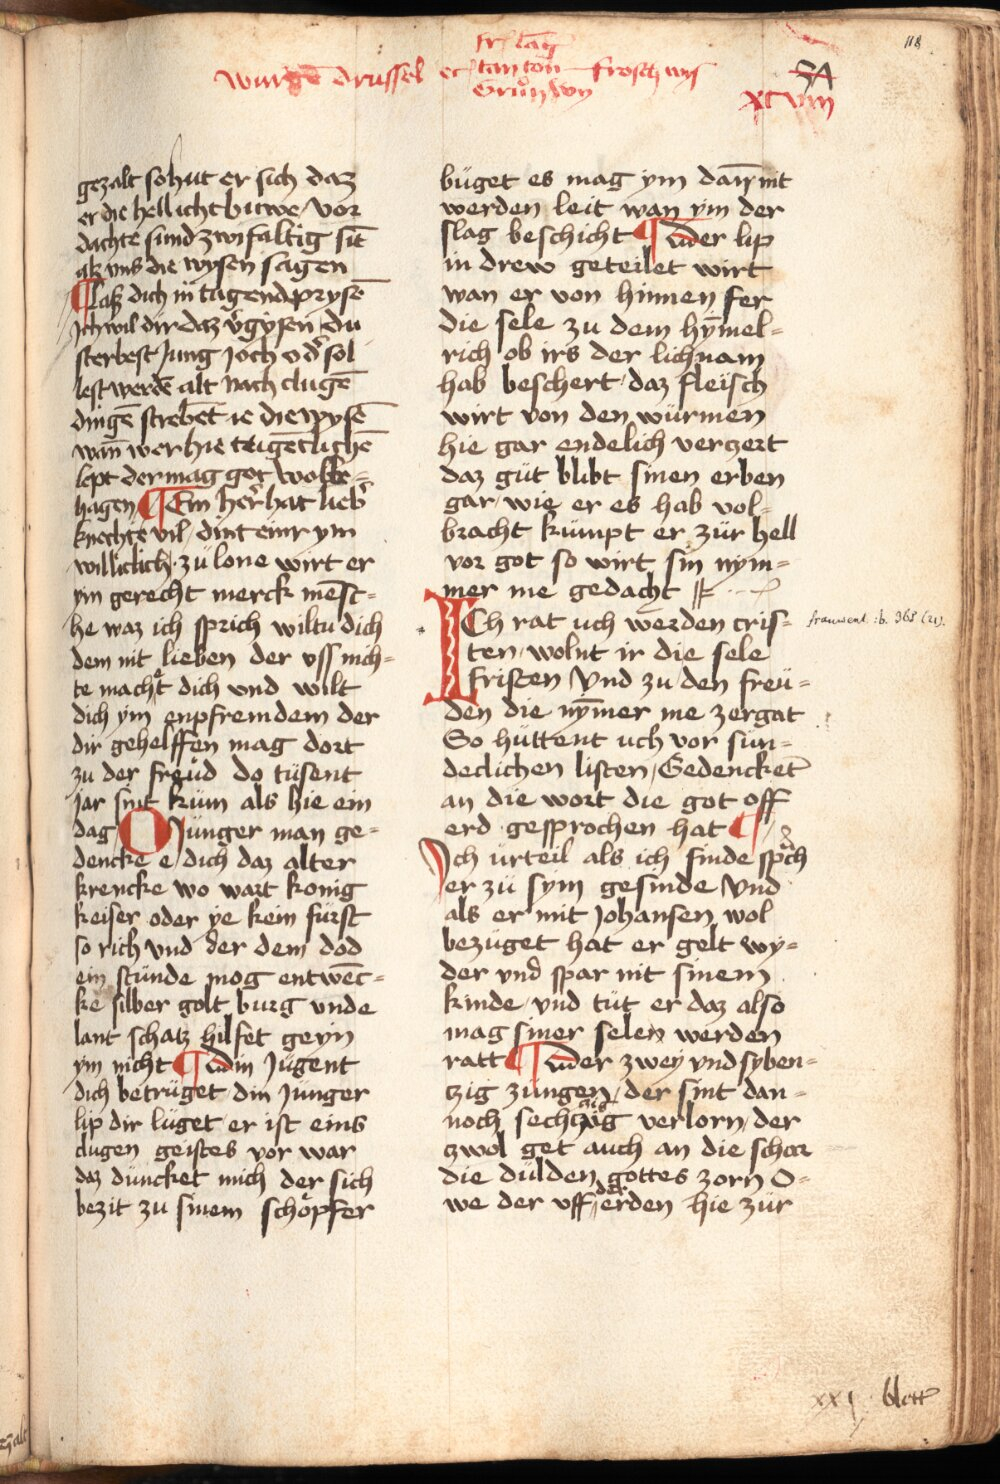 118
fr lāg
wurgē drussel etc tanton froschwys
Grůnwy
SA
xcviii
gezalt so hut er sich daz
er die hell icht buwe / vor
dachte sund zwifaltig sīt
als uns die wysen sagen
¶ Laß dich in tugend prysē
Ich wil dir daz v̓gysen / du
sterbest Jung Joch od̓ sol
lest werdē alt nach clugē
dingē strebēt ie die wysē
wān wer hie tugetlichē
lept der mag got wolbe=
hagen ¶ Ein her̓ hat lieb̓
knechte vil / dint einr ym
williclich · zu lone wirt er
ym gerecht merck mēst=
he waz ich sprich wiltu dich
dem nit lieben der uss nich=
te macht dich und wilt
dich ym enpfremdem der
dir gehelffen mag dort
zu der freůd do tüsent
jar sint küm als hie ein
dag O Jünger man ge=
dencke e / dich daz alter
krencke wo wart konig
keiser oder ye kein fürst
so rich vnd der dem dod
ein stünde mog entwēc=
ke silber golt burg vnde
lant schatz hilfet geyn
ym nicht ¶ Din Jugent
dich betrüget din Jünger
lip dir lüget er ist eins
clugen geistes vor war
daz düncket mich der sich
bezit zu sinem schöpfer
büget es mag ym darm nit
werden leit wan ym der
slag beschicht ¶ Der lip
in drew geteilet wirt
wan er von hinnen fer
die sele zu dem hȳmel=
rich ob irs der lichnam
hab beschert / daz fleisch
wirt von den würmen
hie gar endelich verczert
daz güt blibt sinen erben
gar / wie er es hab vol=
bracht kümpt er zür hell
vor got so wirt sin nym=
mer me gedacht
ICh rat uch werden cris=
frauwenl. : b. 368 (21).
ten / wolnt ir die sele
fristen Vnd zu den freü=
den die nȳmer me zergat
So hüttent uch vor sün=
declichen listen / Gedencket
an die wort die got off
erd gesprochen hat ¶
Ich ürteil als ich finde spch
er zü sym gesinde Vnd
als er mit Johansen wol
bezüget hat er gelt wy=
der vnd spar nit sinem
kinde / vnd tüt er daz also
mag siner selen werden
ratt ¶ Der zwey vnd syben=
tzig züngen / der sint dan=
noch sechczig verlorn / der
zwol get auch an die schar
die dülden gottes zorn O=
we der uff der erden hie zür
xxj blett